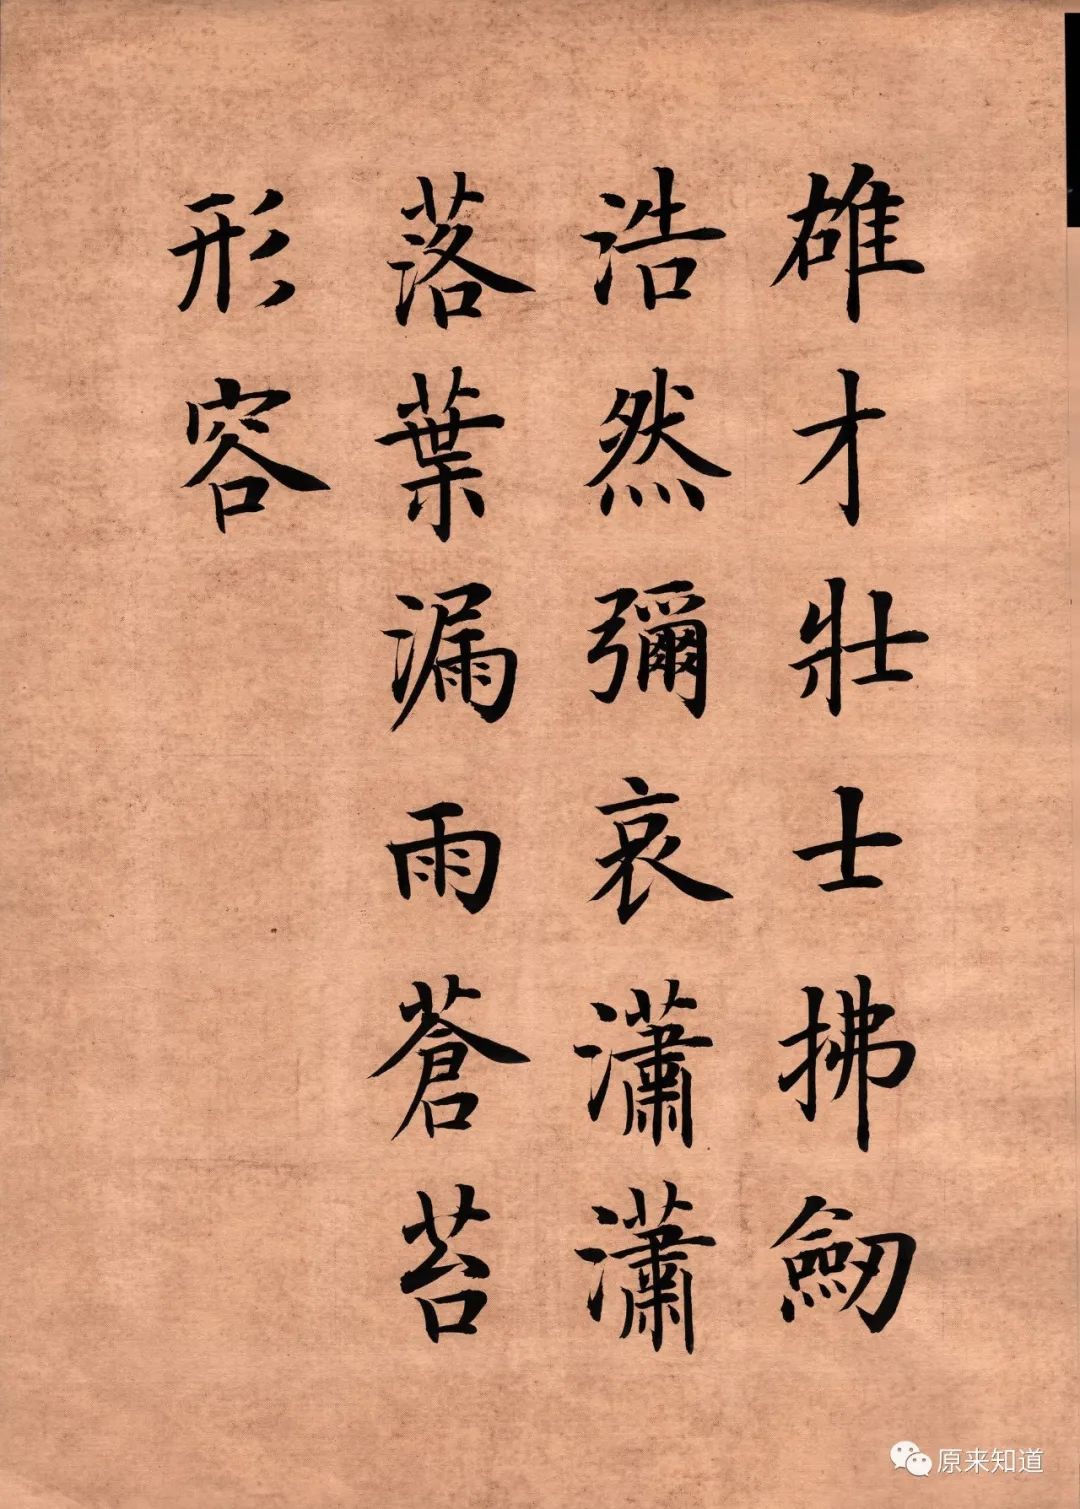 雄才壯士拂劒
浩然彌哀瀟瀟
落葉漏雨蒼苔
形容
原来知道